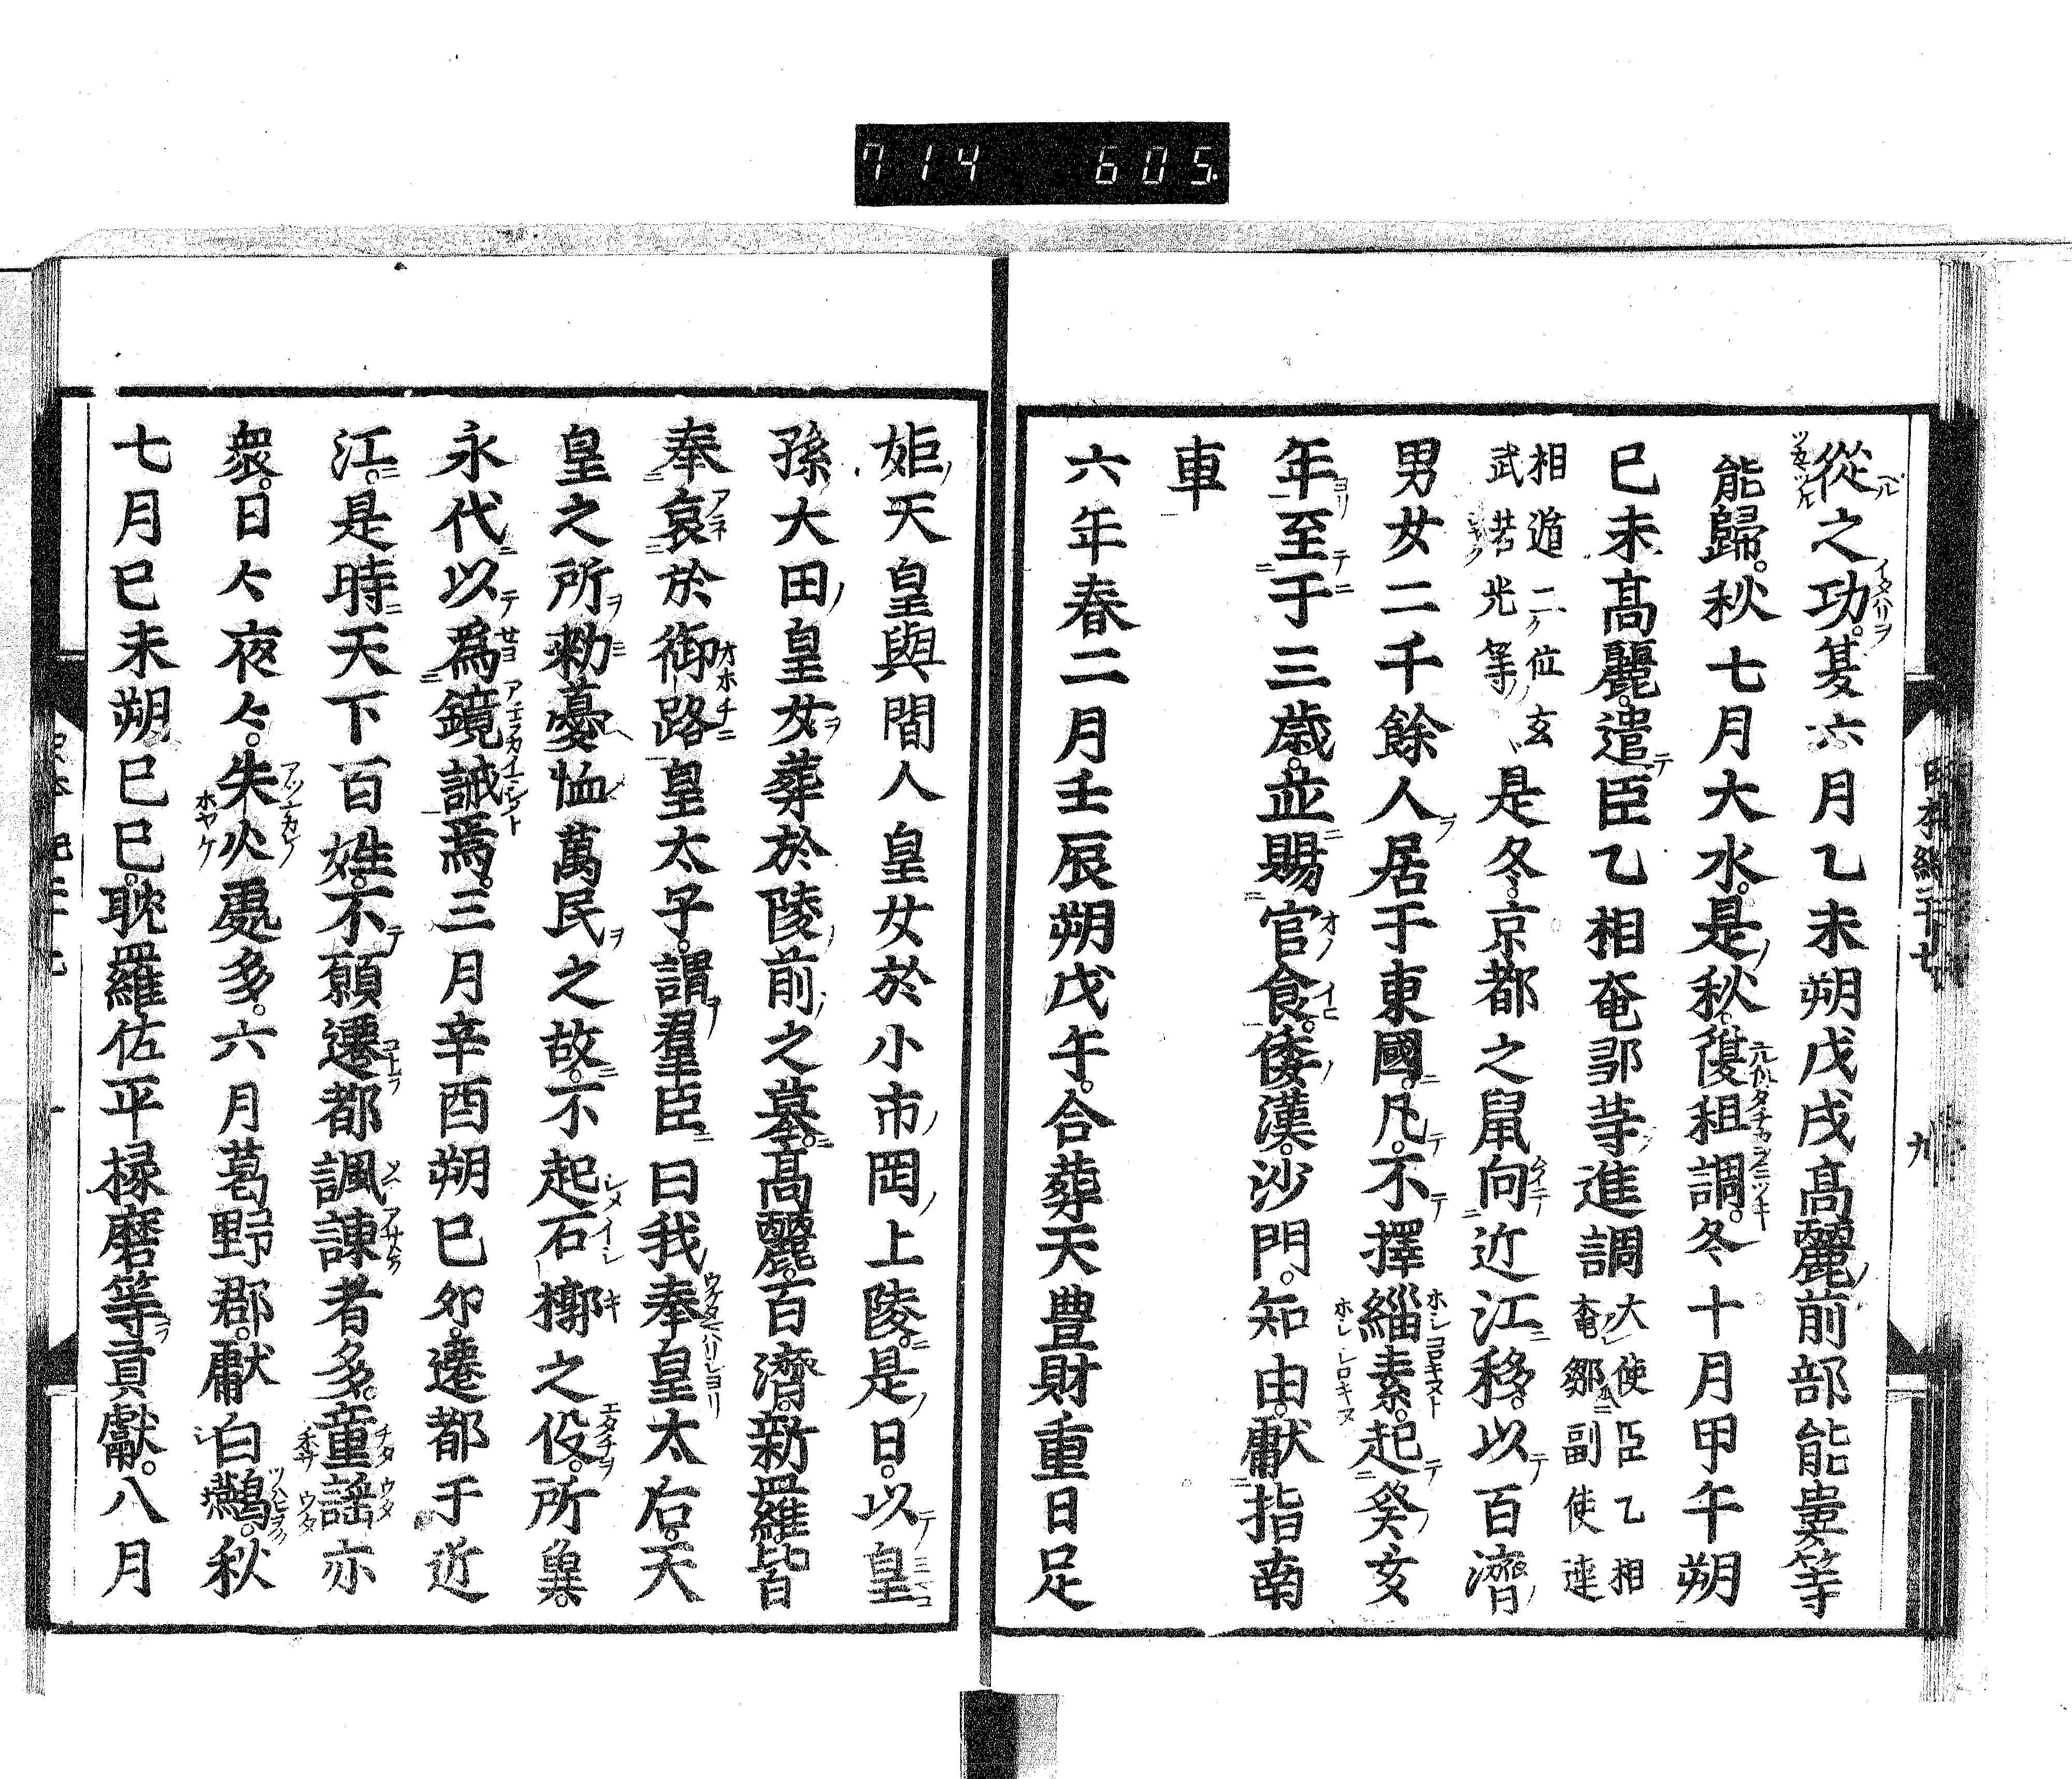 714 605.
日本紀二十七
九
從之功。𦭖六月乙未朔戊戌高麗前部能婁等
能歸。秋七月大水。是秋復租調。冬十月甲午朔
已未高麗。遣臣乙相奄鄒等進調大使臣乙相奄鄒副使達
相遁二位玄武若光等是冬京都之鼠向近江移。以百濟
男女二千餘人居于東國。凡不擇緇素。起癸亥
年至于三歳。並賜官食。倭漢沙門。知由。獻指南
車
六年春二月壬辰朔戊午。合葬天豊財重日足
姫天皇與間人皇女於小市罡上陵。是日。以皇
孫大田皇女葬於陵前之墓。高麗。百濟。新羅。皆
奉哀於御路皇太子。謂羣臣曰我奉皇太后。天
皇之所勅憂恤萬民之故。不起石槨之役。所冀。
永代以為鏡誡焉。三月辛酉朔已卯。遷都于近
江。是時天下百姓。不願遷都諷諫者多。童謡亦
衆。日々夜々。失火處多。六月葛野郡。獻白䴏。秋
七月已未朔已巳。耽羅佐平椽磨等貢獻。八月